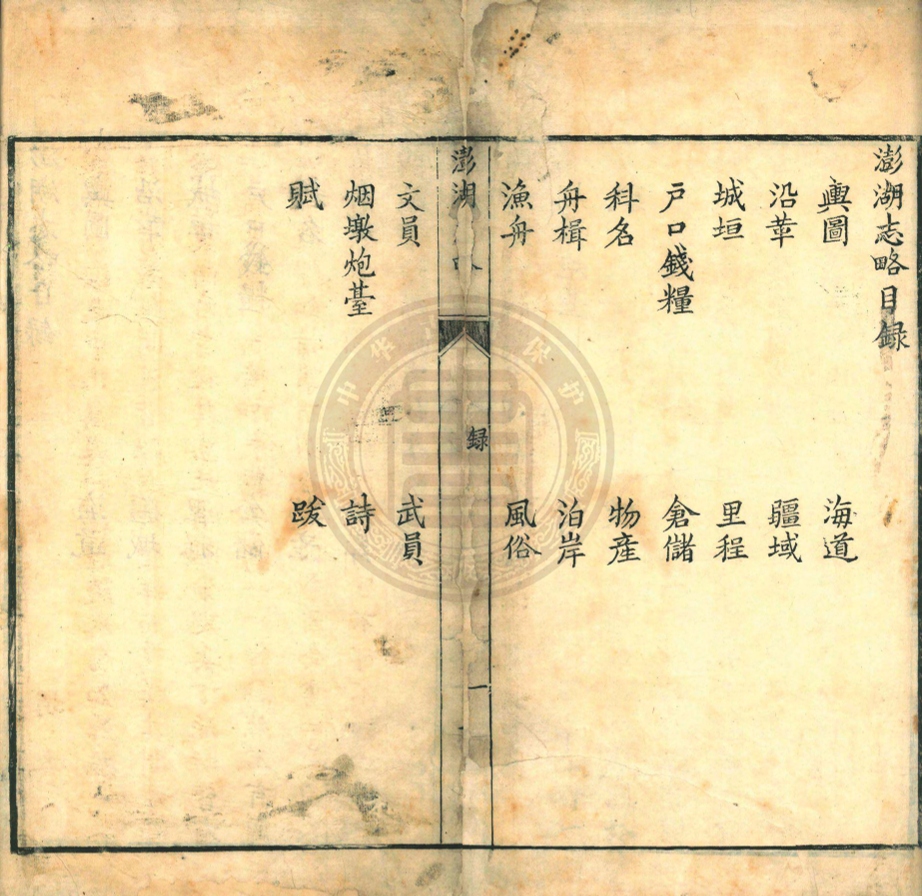 澎湖志略目録
輿圖
海道
沿革
疆域
城垣
里程
戸口錢糧
倉儲
科名
物産
舟楫
泊岸
漁舟
風俗
澎湖
録
一
文員
武員
烟墩炮臺
詩
賦
跋